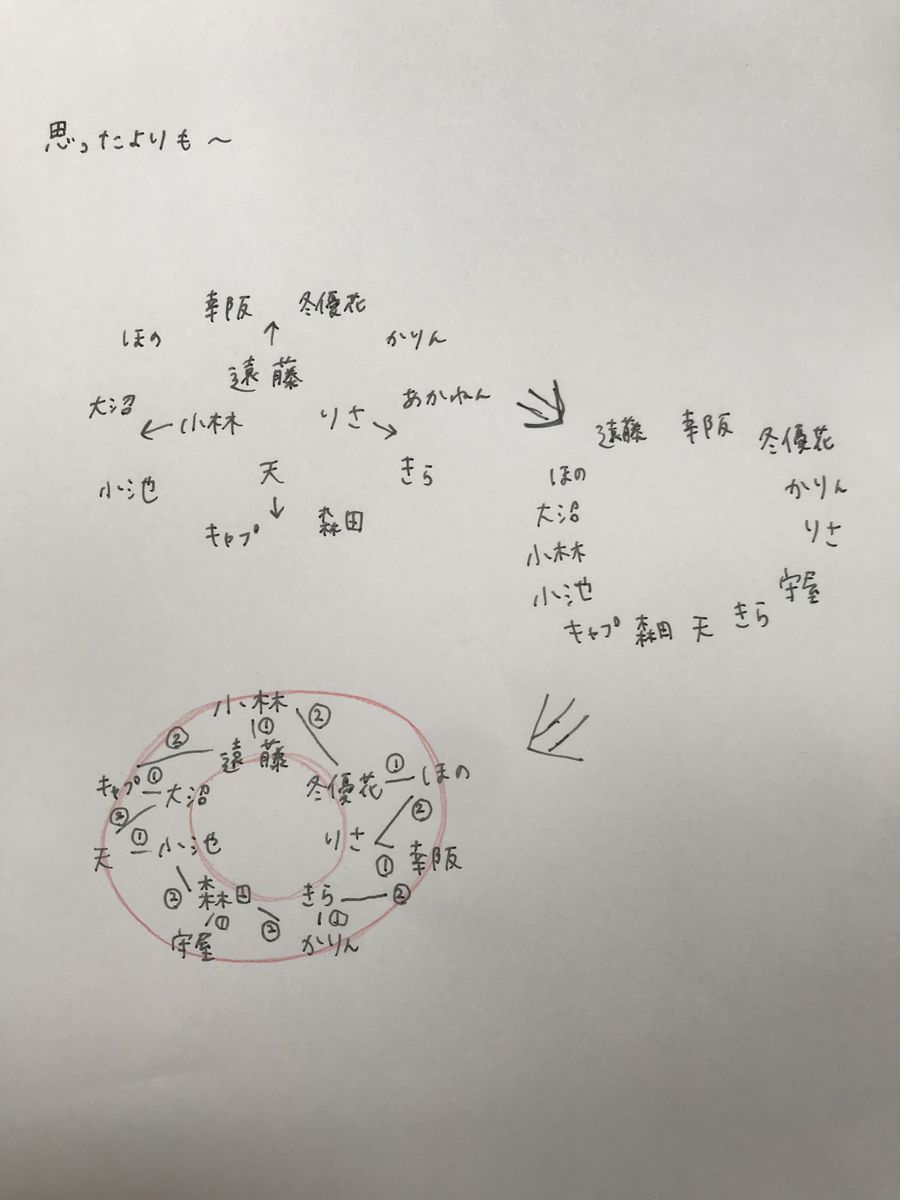 思ったよりも～
幸阪 冬優花
ほの ↑ かりん
遠藤
大沼 あかねん
← 小林 りさ →
小池 天 きら
↓
キャプ 森田
遠藤 幸阪 冬優花
ほの かりん
大沼 りさ
小林
小池 守屋
キャプ 森田 天 きら
小林
① ②
② 遠藤
キャプ ① 大沼 冬優花 ① ほの
② ②
天 ① 小池 りさ ① 幸阪
② 森田 きら ②
① ② ①
守屋 かりん